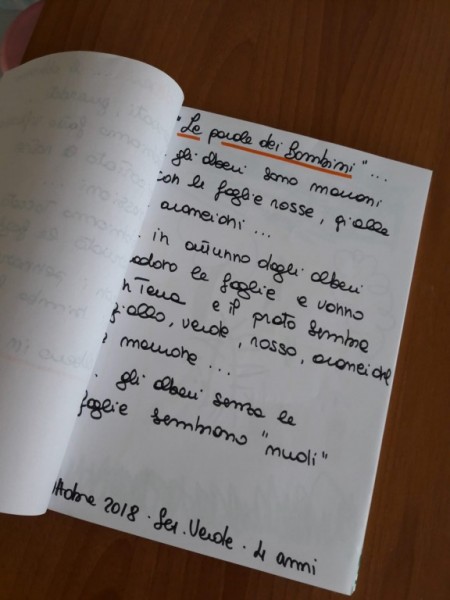 "Le parole dei Bambini" ...
gli alberi sono marroni
con le foglie rosse, gialle
arancioni ...
in autunno dagli alberi
cadono le foglie e vanno
in Terra e il prato sembra
giallo, verde, rosso, arancione
e marrone ...
gli alberi senza le
foglie sembrano "nudi"
ottobre 2018 · Sez. Verde · 4 anni